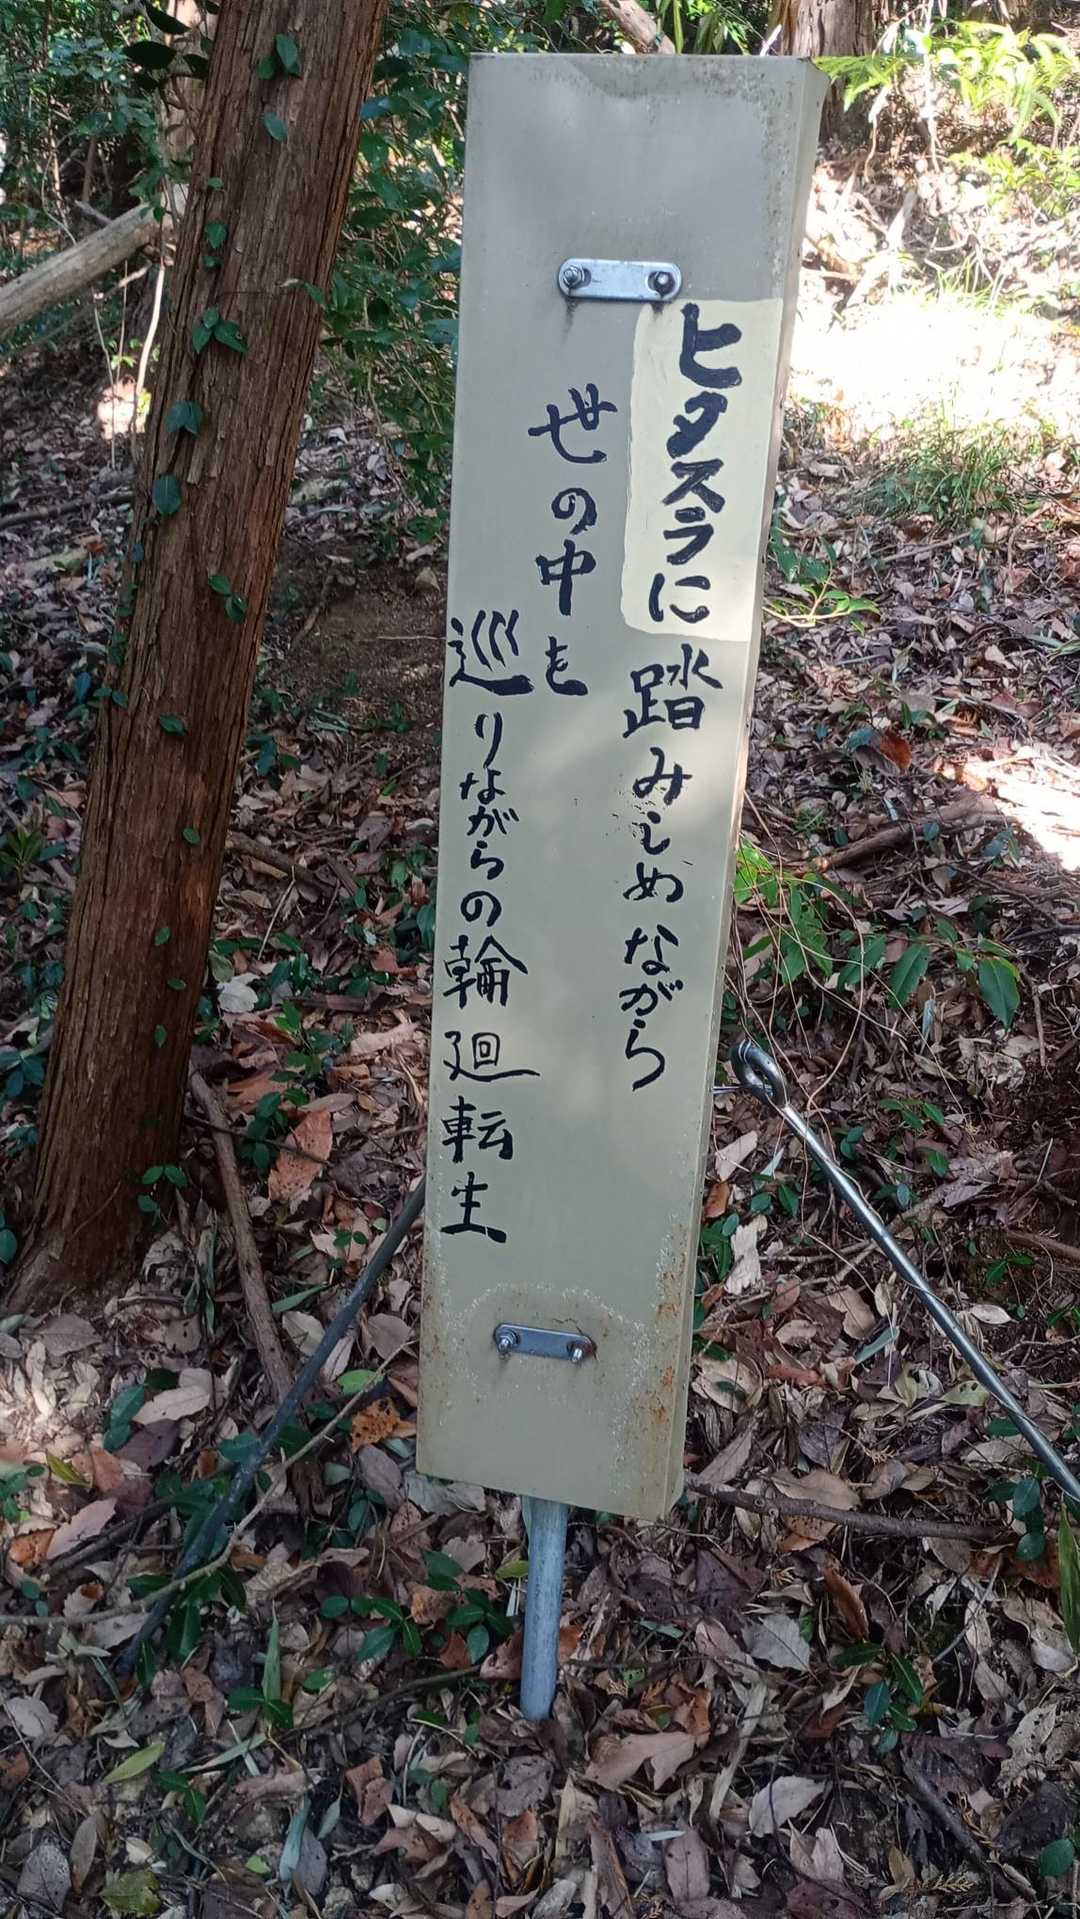 ヒタスラに踏みしめながら
世の中も
巡りながらの輪廻転生